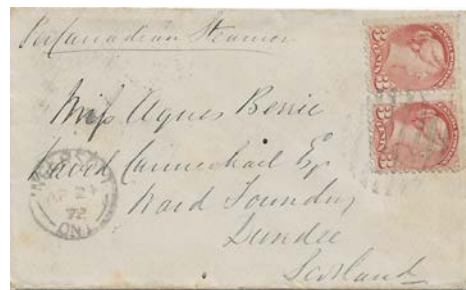 Per Canadian Steamer
Miss Agnes
David Carmichael Esq
Ward Foundry
Dundee
Scotland
AP 24
72
ONT